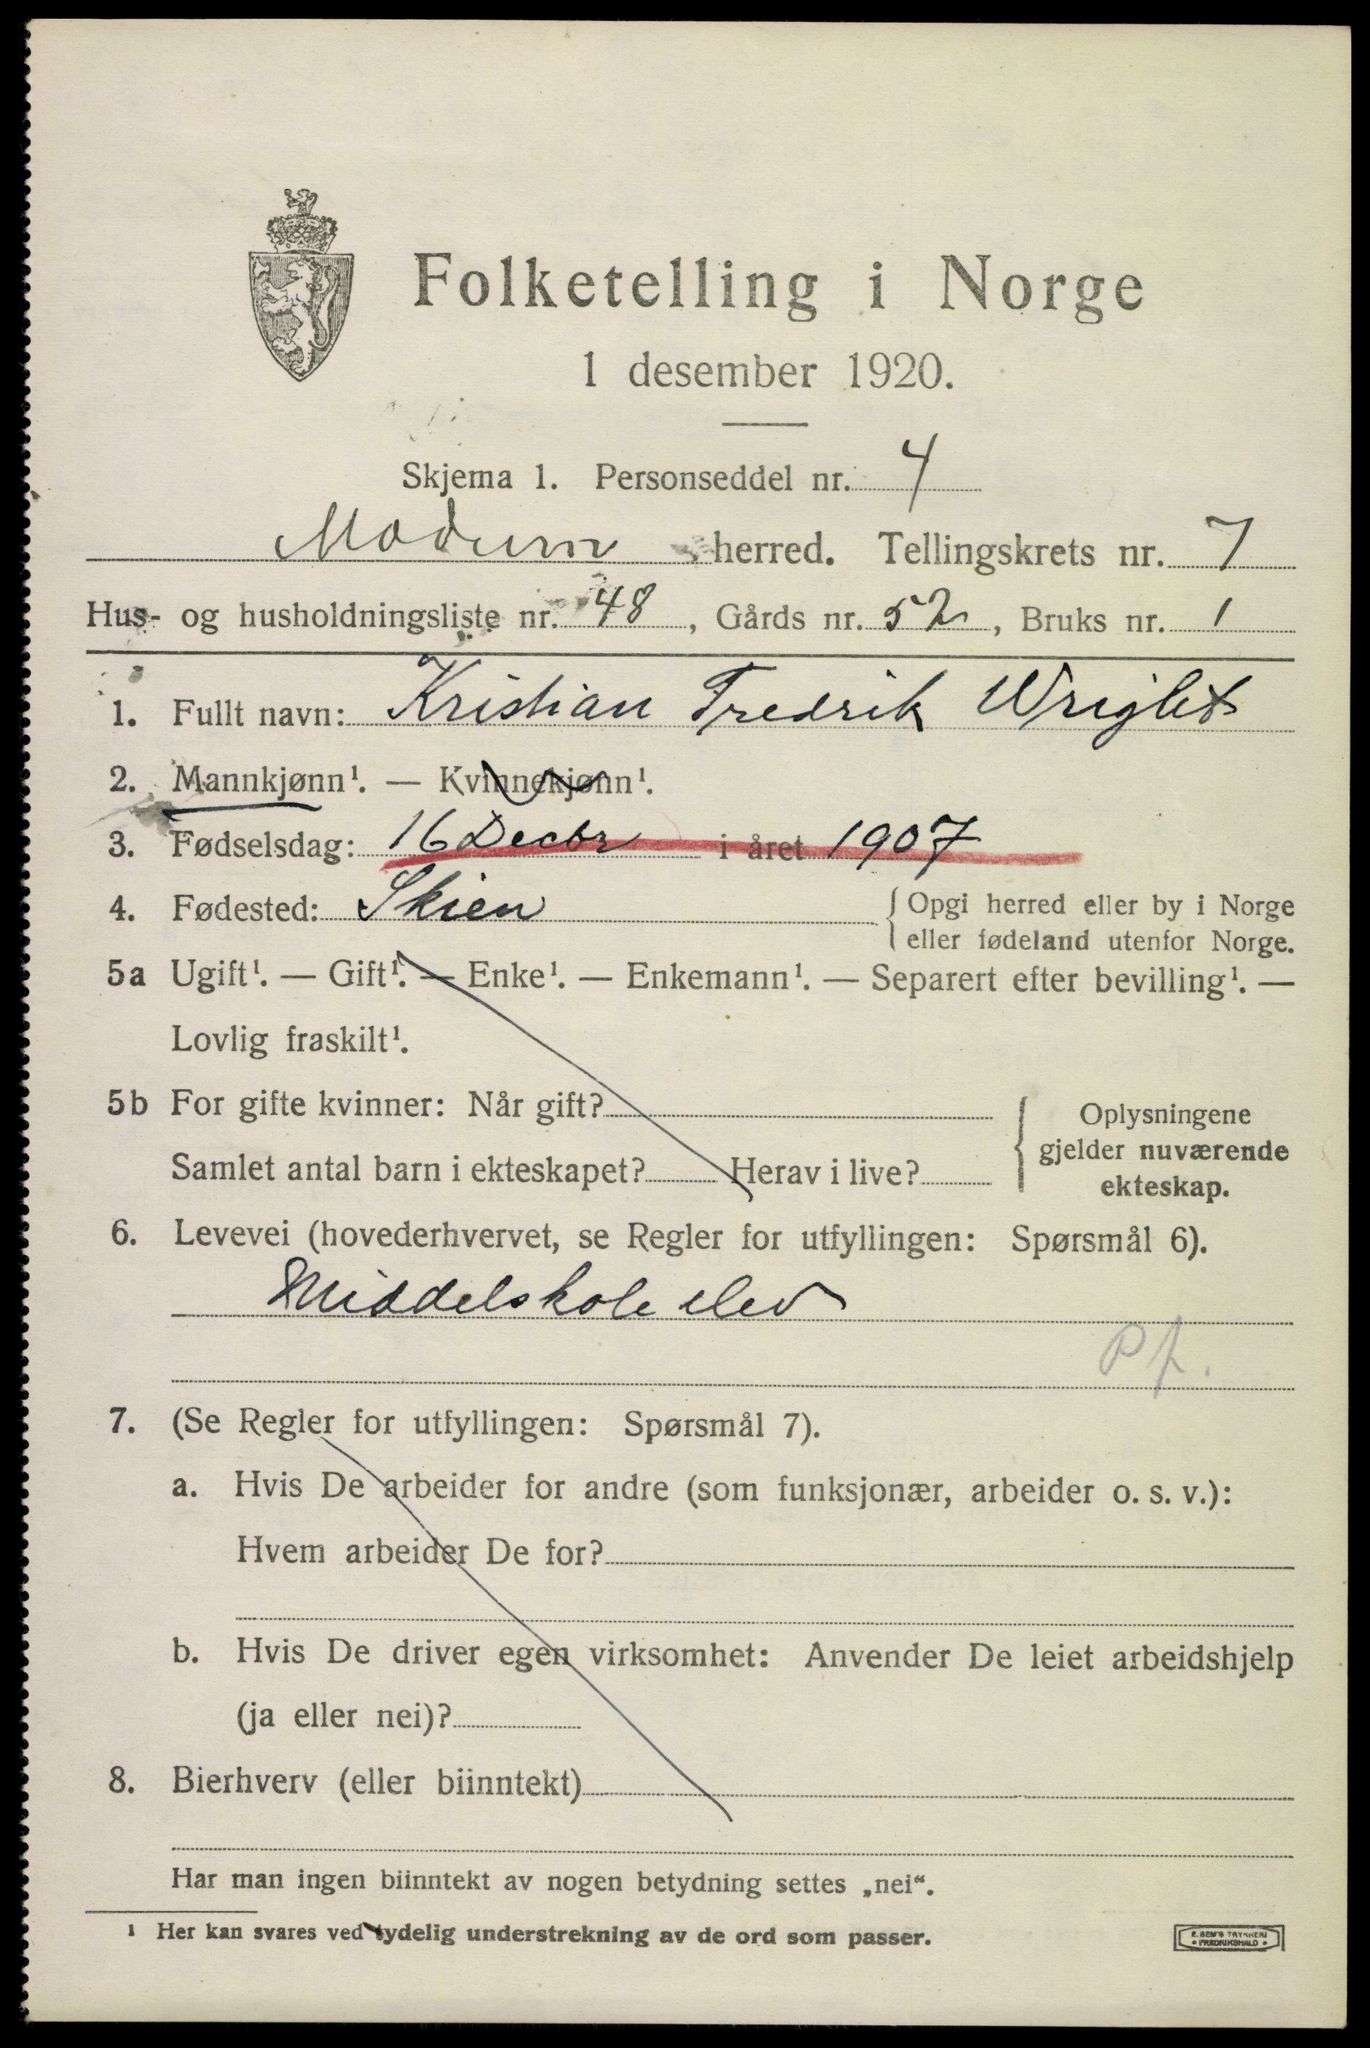 Folketelling i Norge
1 desember 1920.
Skjema 1. Personseddel nr. 4
Modum herred. Tellingskrets nr. 7
Hus- og husholdningsliste nr. 48, Gårds nr. 52, Bruks nr. 1
1. Fullt navn: Kristian Fredrik Wright
2. Mannkjønn¹. — Kvinnekjønn¹.
3. Fødselsdag: 16 Decbr i året 1907
4. Fødested: Skien { Opgi herred eller by i Norge
eller fødeland utenfor Norge.
5a Ugift¹. — Gift¹. — Enke¹. — Enkemann¹. — Separert efter bevilling¹. —
Lovlig fraskilt¹.
5b For gifte kvinner: Når gift?
Samlet antal barn i ekteskapet? Herav i live?
Oplysningene
gjelder nuværende
ekteskap.
6. Levevei (hovederhvervet, se Regler for utfyllingen: Spørsmål 6).
Middelskole elev
7. (Se Regler for utfyllingen: Spørsmål 7).
a. Hvis De arbeider for andre (som funksjonær, arbeider o. s. v.):
Hvem arbeider De for?
b. Hvis De driver egen virksomhet: Anvender De leiet arbeidshjelp
(ja eller nei)?
8. Bierhverv (eller biinntekt)
Har man ingen biinntekt av nogen betydning settes „nei“.
¹ Her kan svares ved tydelig understrekning av de ord som passer.
E. SEM'S TRYKKERI
• FREDRIKSHALD •